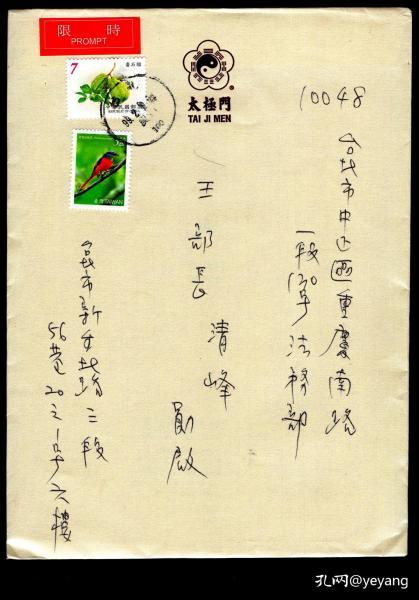 限時
PROMPT
7
番石榴
5元
臺灣TAIWAN
100
太極門
TAI JI MEN
10048
台北市中正區重慶南路
一段130号法務部
王部長清峰
勛啟
台北市新生北路三段
56巷20之1号六樓
孔网@yeyang